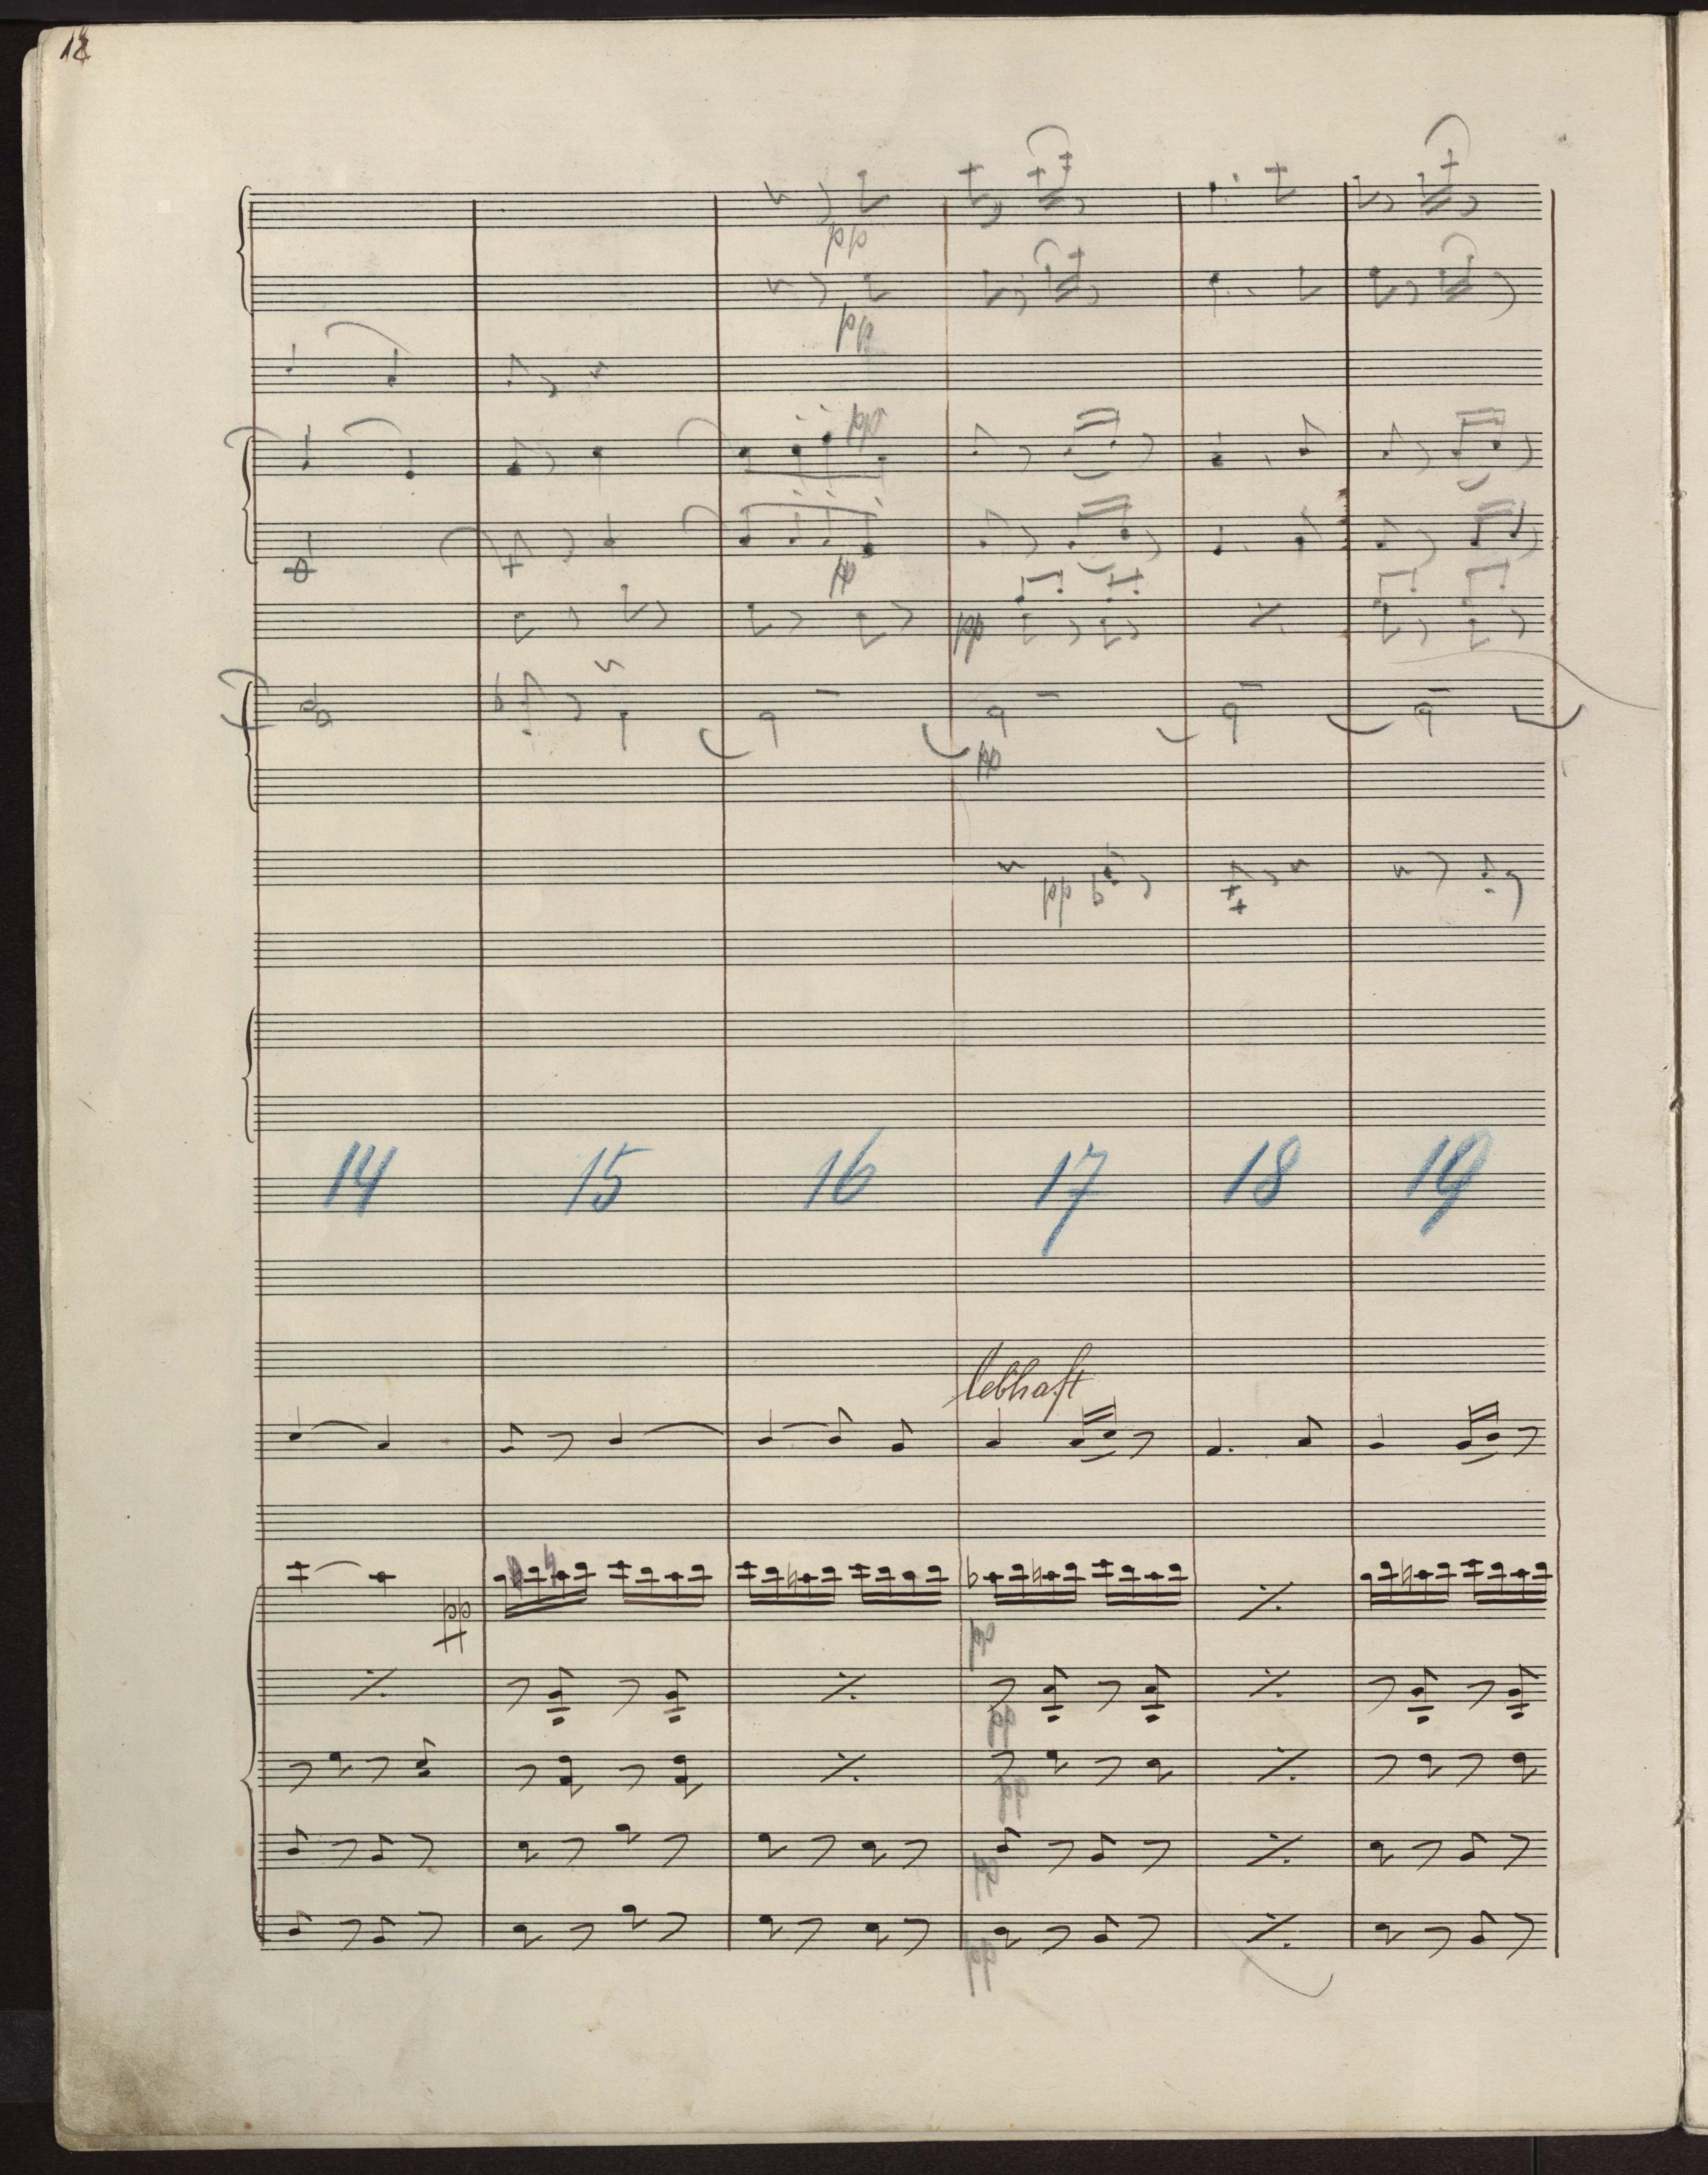 pp
pp
pp
pp
pp
pp
pp
14 15 16 17 18 19
lebhaft
pp
pp
pp
pp
pp
pp